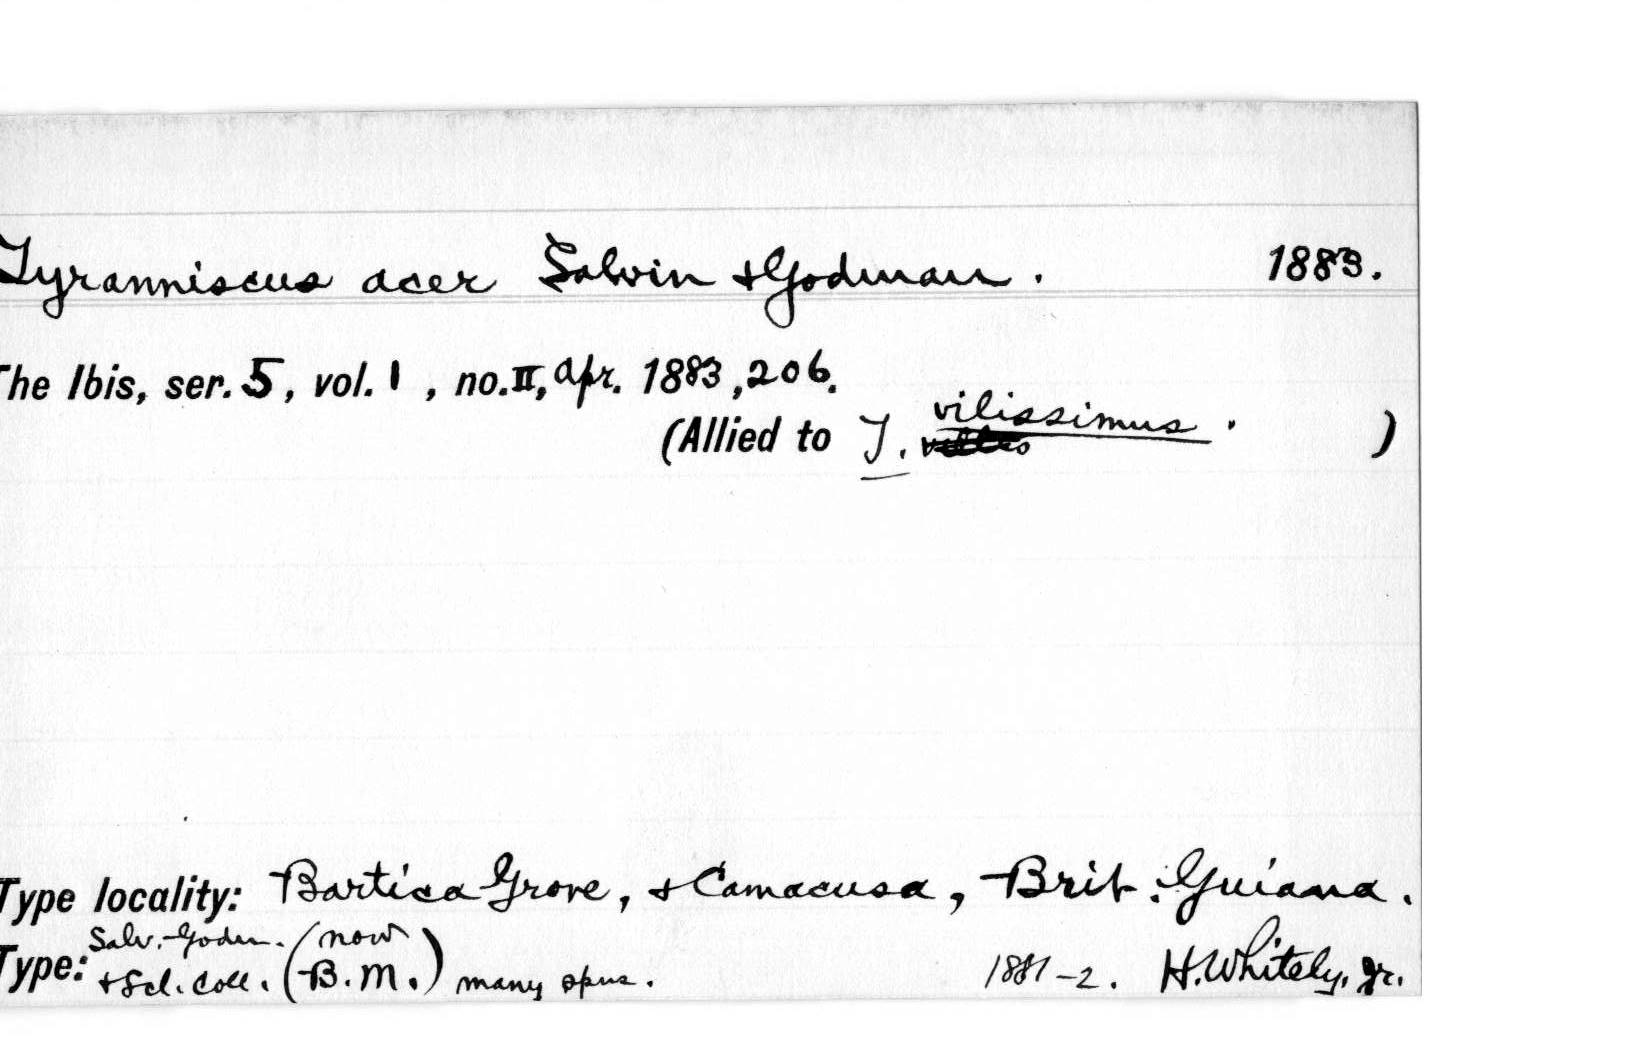 Tyranniscus acer Salvin & Godman. 1883.
The Ibis, ser. 5, vol. 1, no. II, Apr. 1883, 206.
(Allied to T. vilissimus. )
Type locality: Bartica Grove, & Camacusa, Brit. Guiana.
Type: Salv.-Godm. & Scl. Coll. (now B.M.) many spns. 1881-2. H. Whitely, Jr.